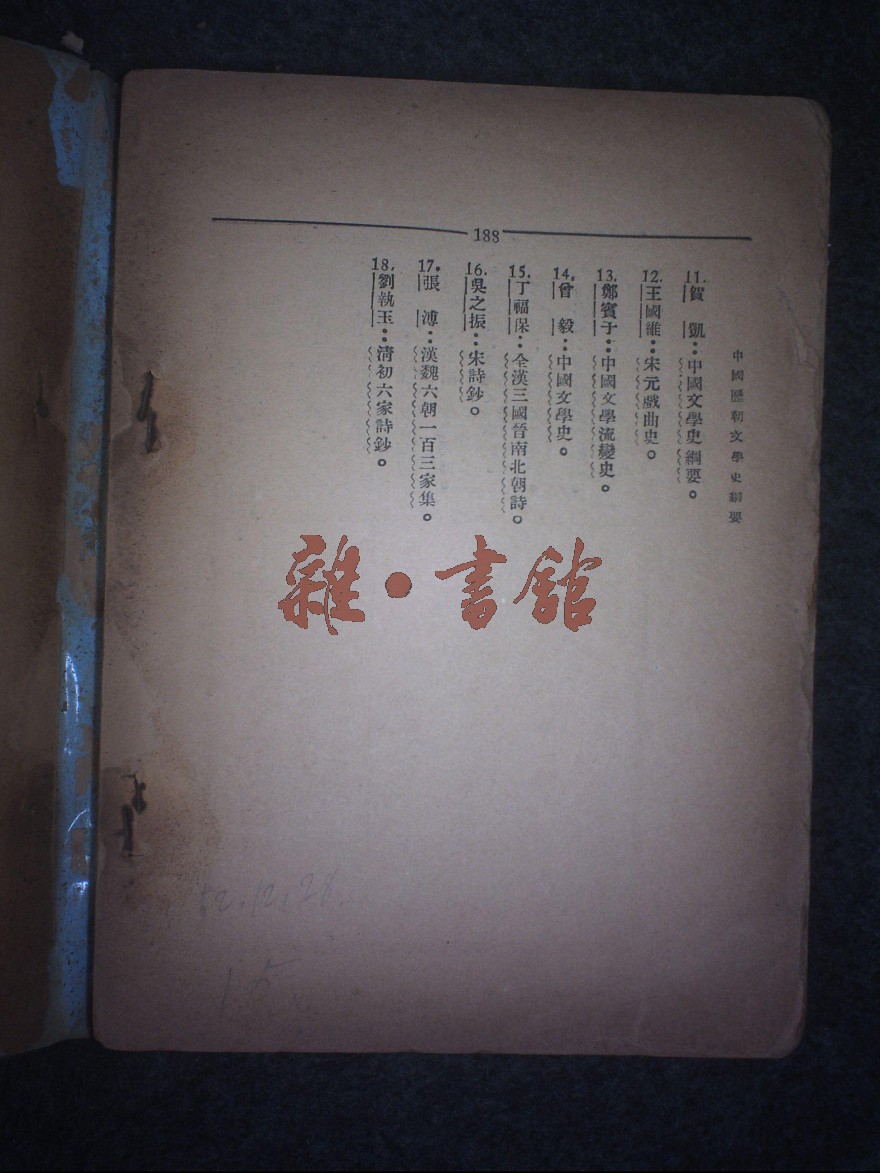 中國歷朝文學史綱要
188
11.賀　凱：中國文學史綱要。
12.王國維：宋元戲曲史。
13.鄭賓于：中國文學流變史。
14.曾　毅：中國文學史。
15.丁福保：全漢三國晉南北朝詩。
16.吳之振：宋詩鈔。
17.張　溥：漢魏六朝一百三家集。
18.劉執玉：清初六家詩鈔。
雜·書館
52.12.28.